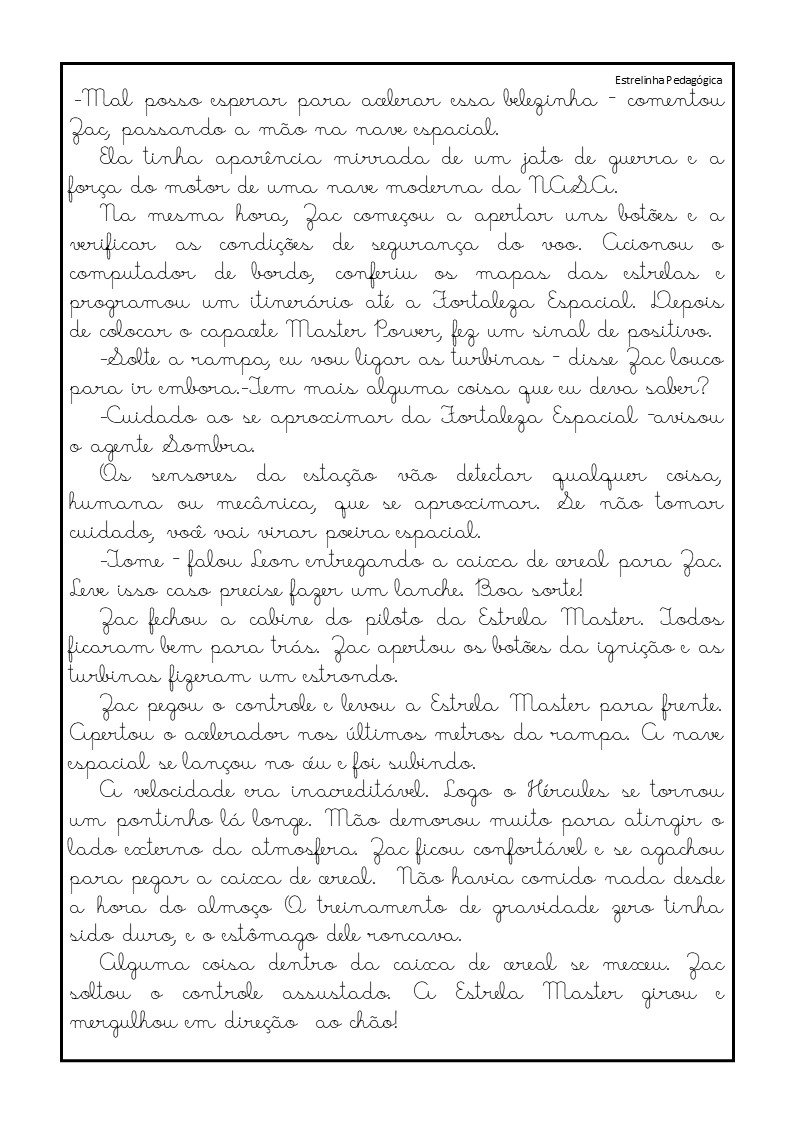 Estrelinha Pedagógica
-Mal posso esperar para acelerar essa belezinha - comentou
Zac, passando a mão na nave espacial.
Ela tinha aparência mirrada de um jato de guerra e a
força do motor de uma nave moderna da NASA.
Na mesma hora, Zac começou a apertar uns botões e a
verificar as condições de segurança do voo. Acionou o
computador de bordo, conferiu os mapas das estrelas e
programou um itinerário até a Fortaleza Espacial. Depois
de colocar o capacete Master Power, fez um sinal de positivo.
-Solte a rampa, eu vou ligar as turbinas - disse Zac louco
para ir embora.-Tem mais alguma coisa que eu deva saber?
-Cuidado ao se aproximar da Fortaleza Espacial -avisou
o agente Sombra.
Os sensores da estação vão detectar qualquer coisa,
humana ou mecânica, que se aproximar. Se não tomar
cuidado, você vai virar poeira espacial.
-Tome - falou Leon entregando a caixa de cereal para Zac.
Leve isso caso precise fazer um lanche. Boa sorte!
Zac fechou a cabine do piloto da Estrela Master. Todos
ficaram bem para trás. Zac apertou os botões da ignição e as
turbinas fizeram um estrondo.
Zac pegou o controle e levou a Estrela Master para frente.
Apertou o acelerador nos últimos metros da rampa. A nave
espacial se lançou no céu e foi subindo.
A velocidade era inacreditável. Logo o Hércules se tornou
um pontinho lá longe. Mão demorou muito para atingir o
lado externo da atmosfera. Zac ficou confortável e se agachou
para pegar a caixa de cereal. Não havia comido nada desde
a hora do almoço O treinamento de gravidade zero tinha
sido duro, e o estômago dele roncava.
Alguma coisa dentro da caixa de cereal se mexeu. Zac
soltou o controle assustado. A Estrela Master girou e
mergulhou em direção ao chão!